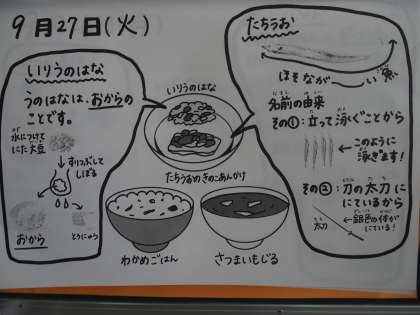 9月27日(火)
いりうのはな
うのはなは、おからの
ことです。
水につけて
にた大豆
すりつぶして
しぼる
おから
とうにゅう
いりうのはな
たちうおのきのこあんかけ
わかめごはん
さつまいもじる
たちうお
ほそなが〜い魚
名前の由来
その①:立って泳ぐことから
このように
泳ぎます!
その②:刀の太刀に
にているから
太刀
銀色の体が
にている!